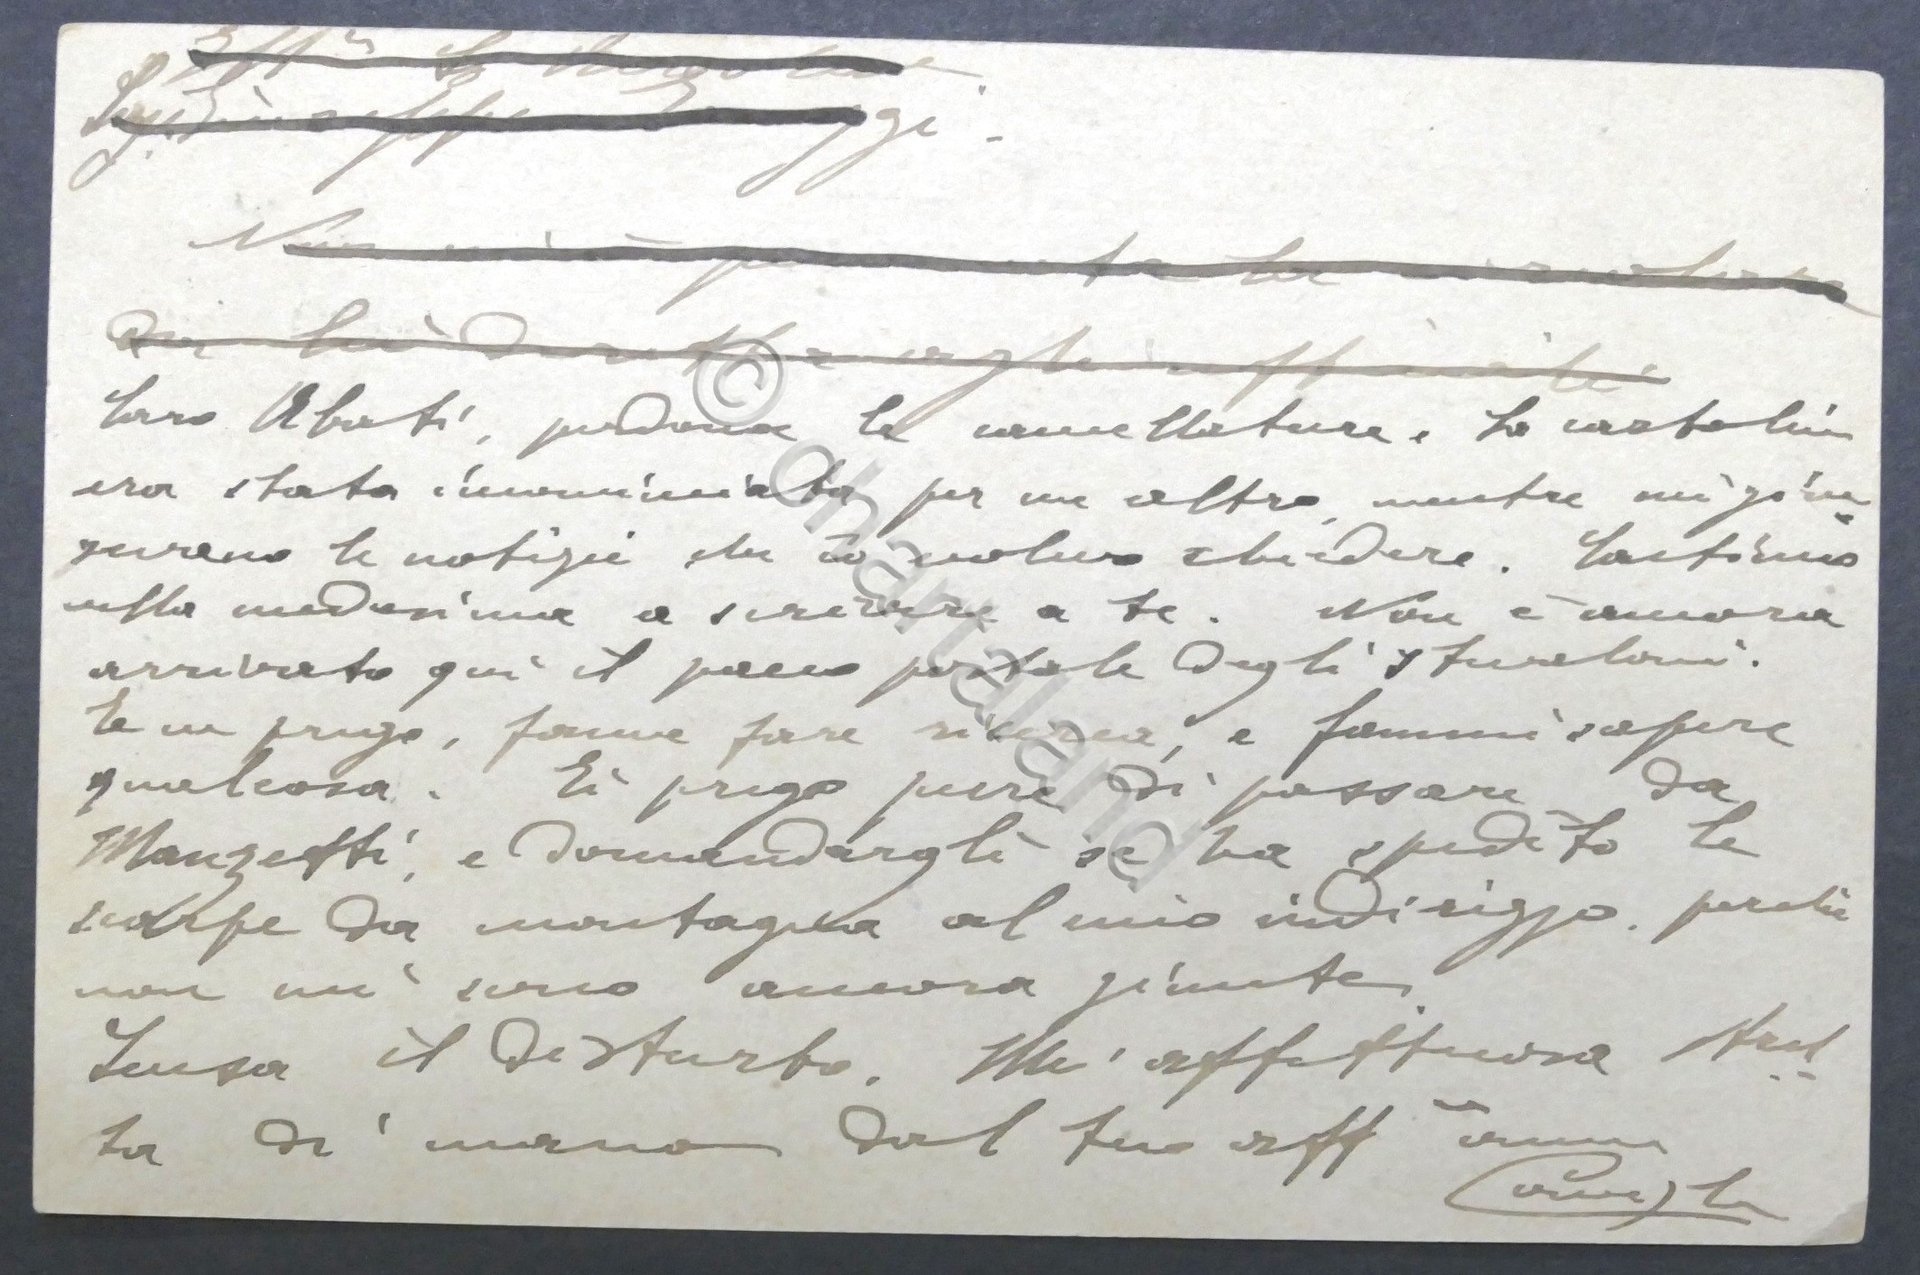 Non
per
Caro Abati, perdona le cancellature. La cartolina
era stata incominciata per un altro, mentre mi giun-
gevano le notizie che io volevo chiedere. Continuo
nella medesima a scrivere a te. Non è ancora
arrivato qui il pacco postale degli stivaloni.
Te ne prego, fanne fare ricerca, e fammi sapere
qualcosa. Ti prego pure di passare da
Manzetti, e domandargli se ha spedito le
scarpe da montagna al mio indirizzo, perchè
non mi sono ancora giunte.
Scusa il disturbo. Un' affettuosa stret-
ta di mano dal tuo aff
© chartaland